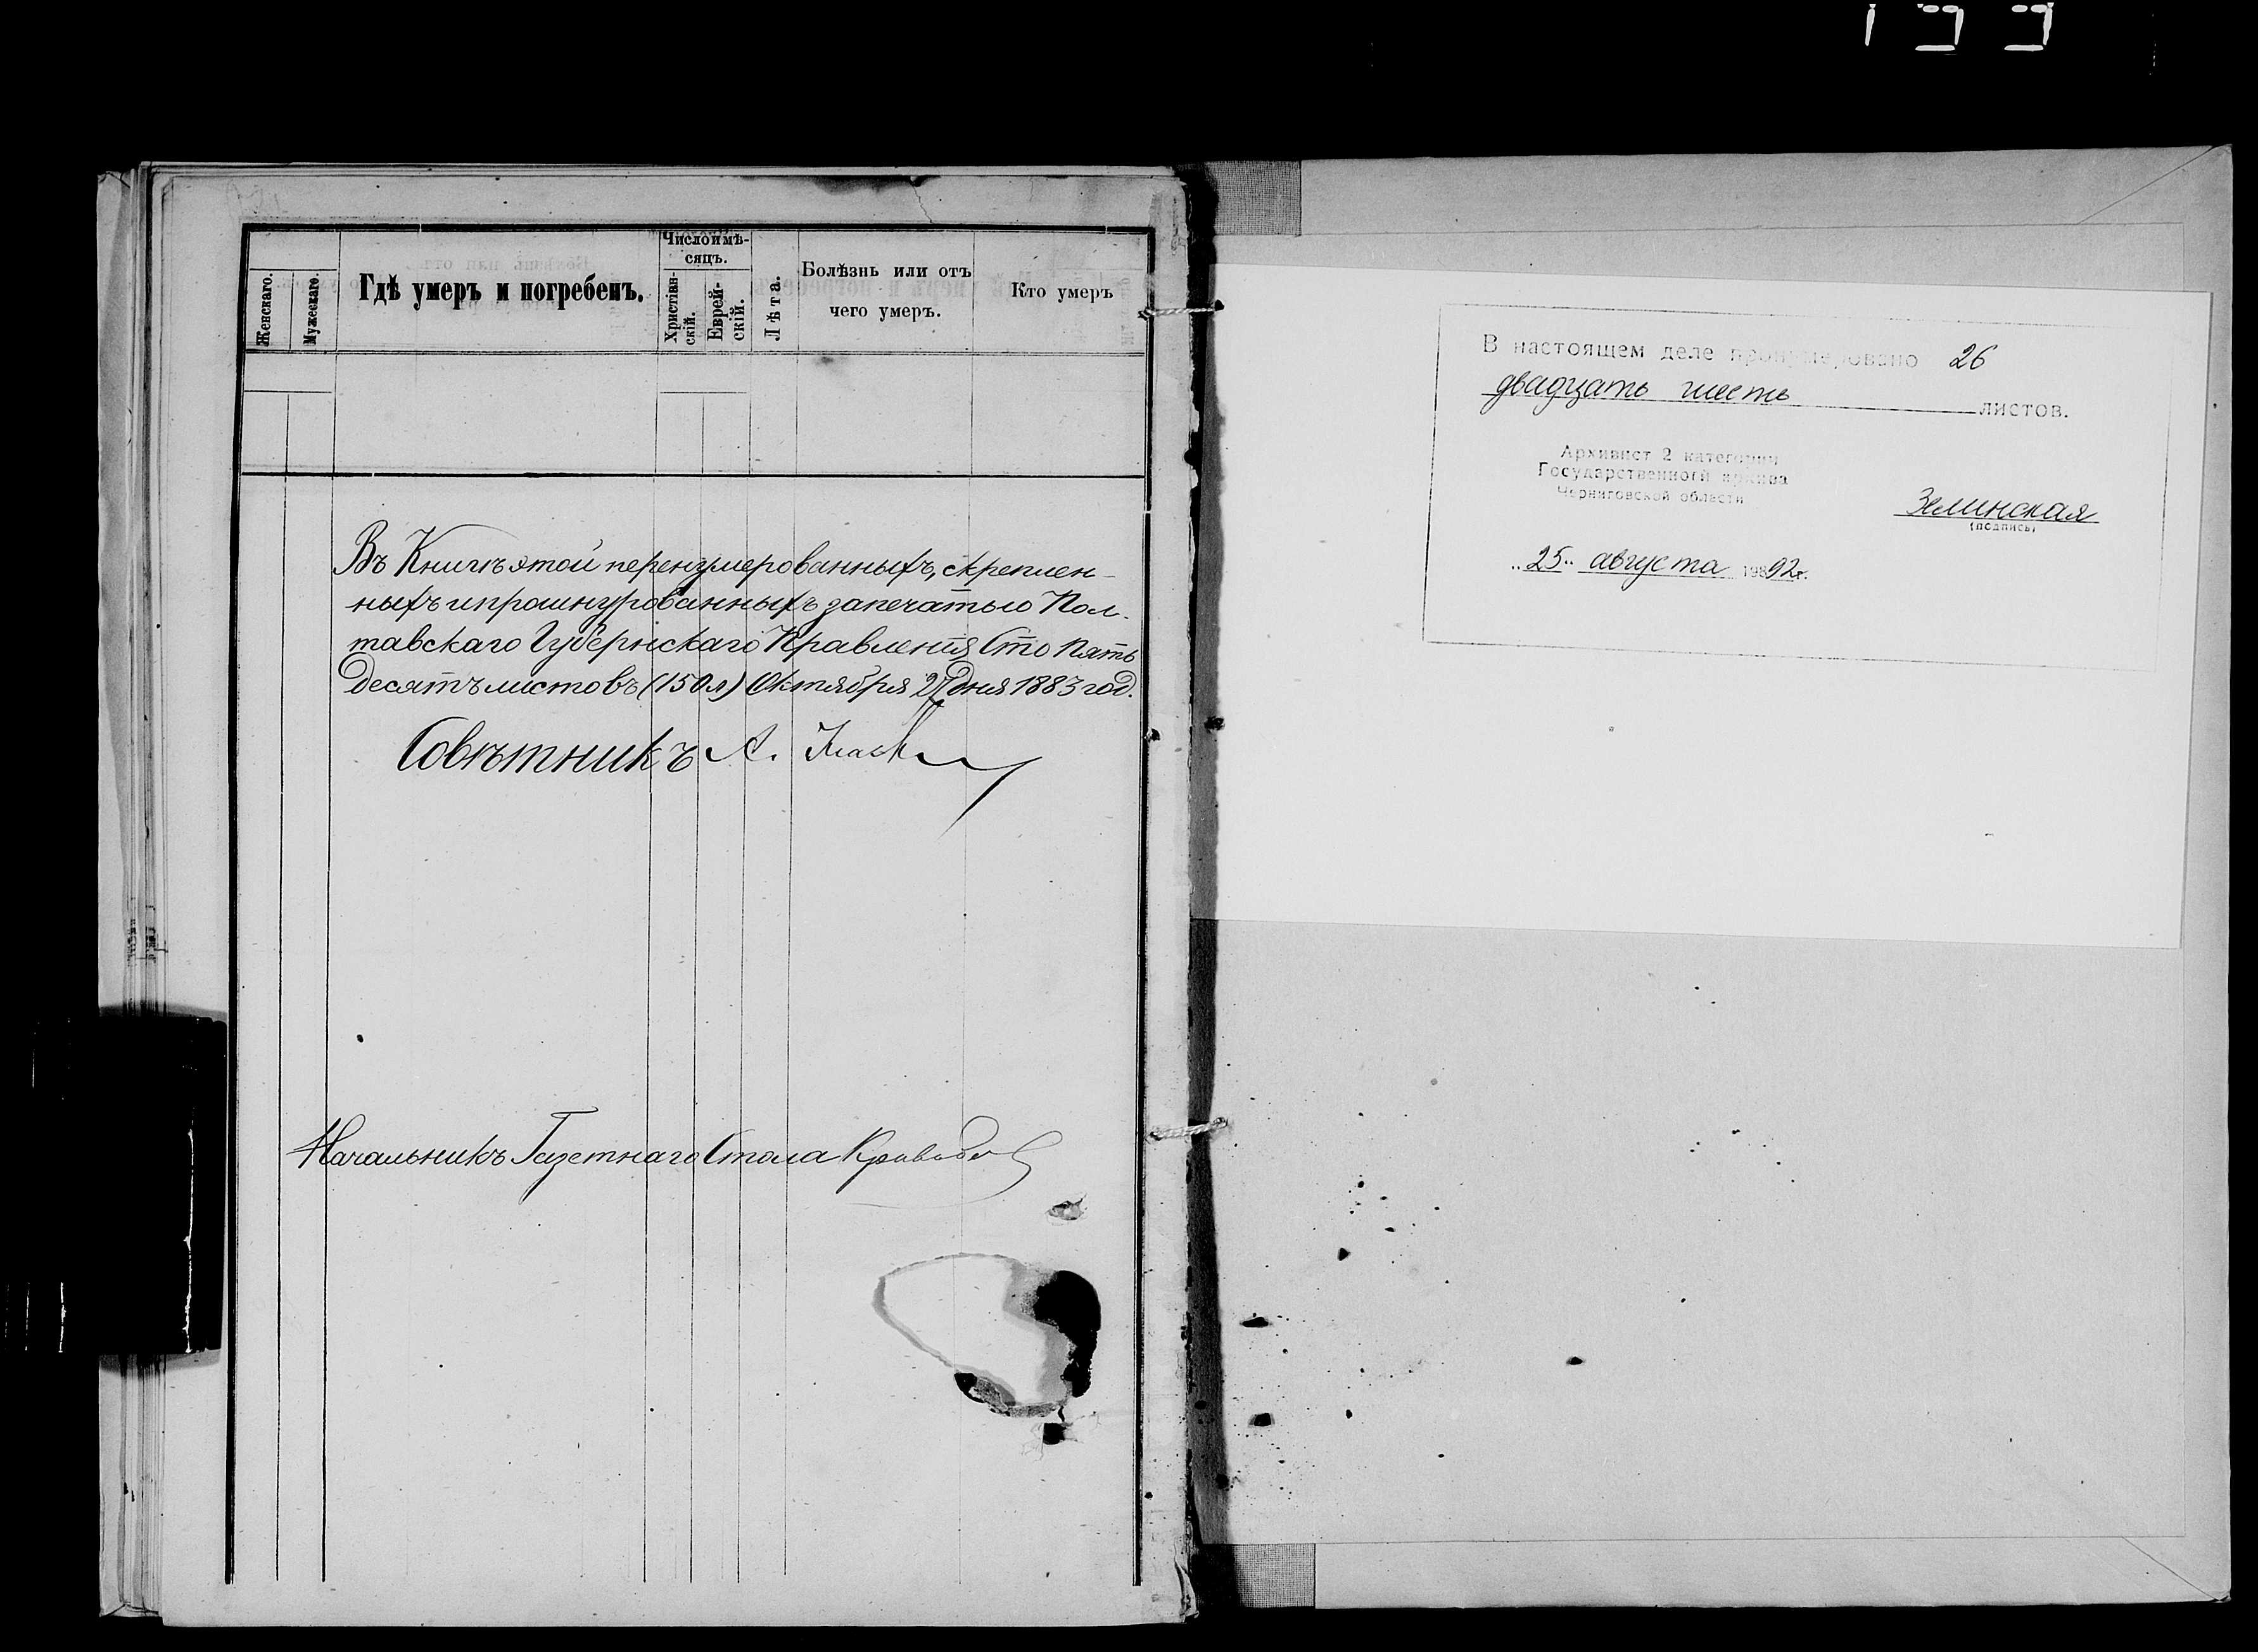 Женскаго.
Мужескаго.
Гдѣ умеръ и погребенъ.
Число и мѣ-
сяцъ.
Христіан-
скій.
Еврей-
скій.
Лѣта.
Болѣзнь или отъ
чего умеръ.
Кто умеръ
Въ Книгѣ этой перенумерованныхъ, скреплен-
ныхъ и прошнурованныхъ за печатью Пол-
тавскаго Губернскаго Правленія Сто Пять
десятъ листовъ (150 л) Октября дня 1883 год.
Совѣтникъ А.
Начальникъ Газетнаго Стола
В настоящем деле пронумеровано 26
двадцать шесть листов.
Архивист 2 категории
Государственного архива
Черниговской области
Зелинская
(подпись)
„25“ августа 1992г.